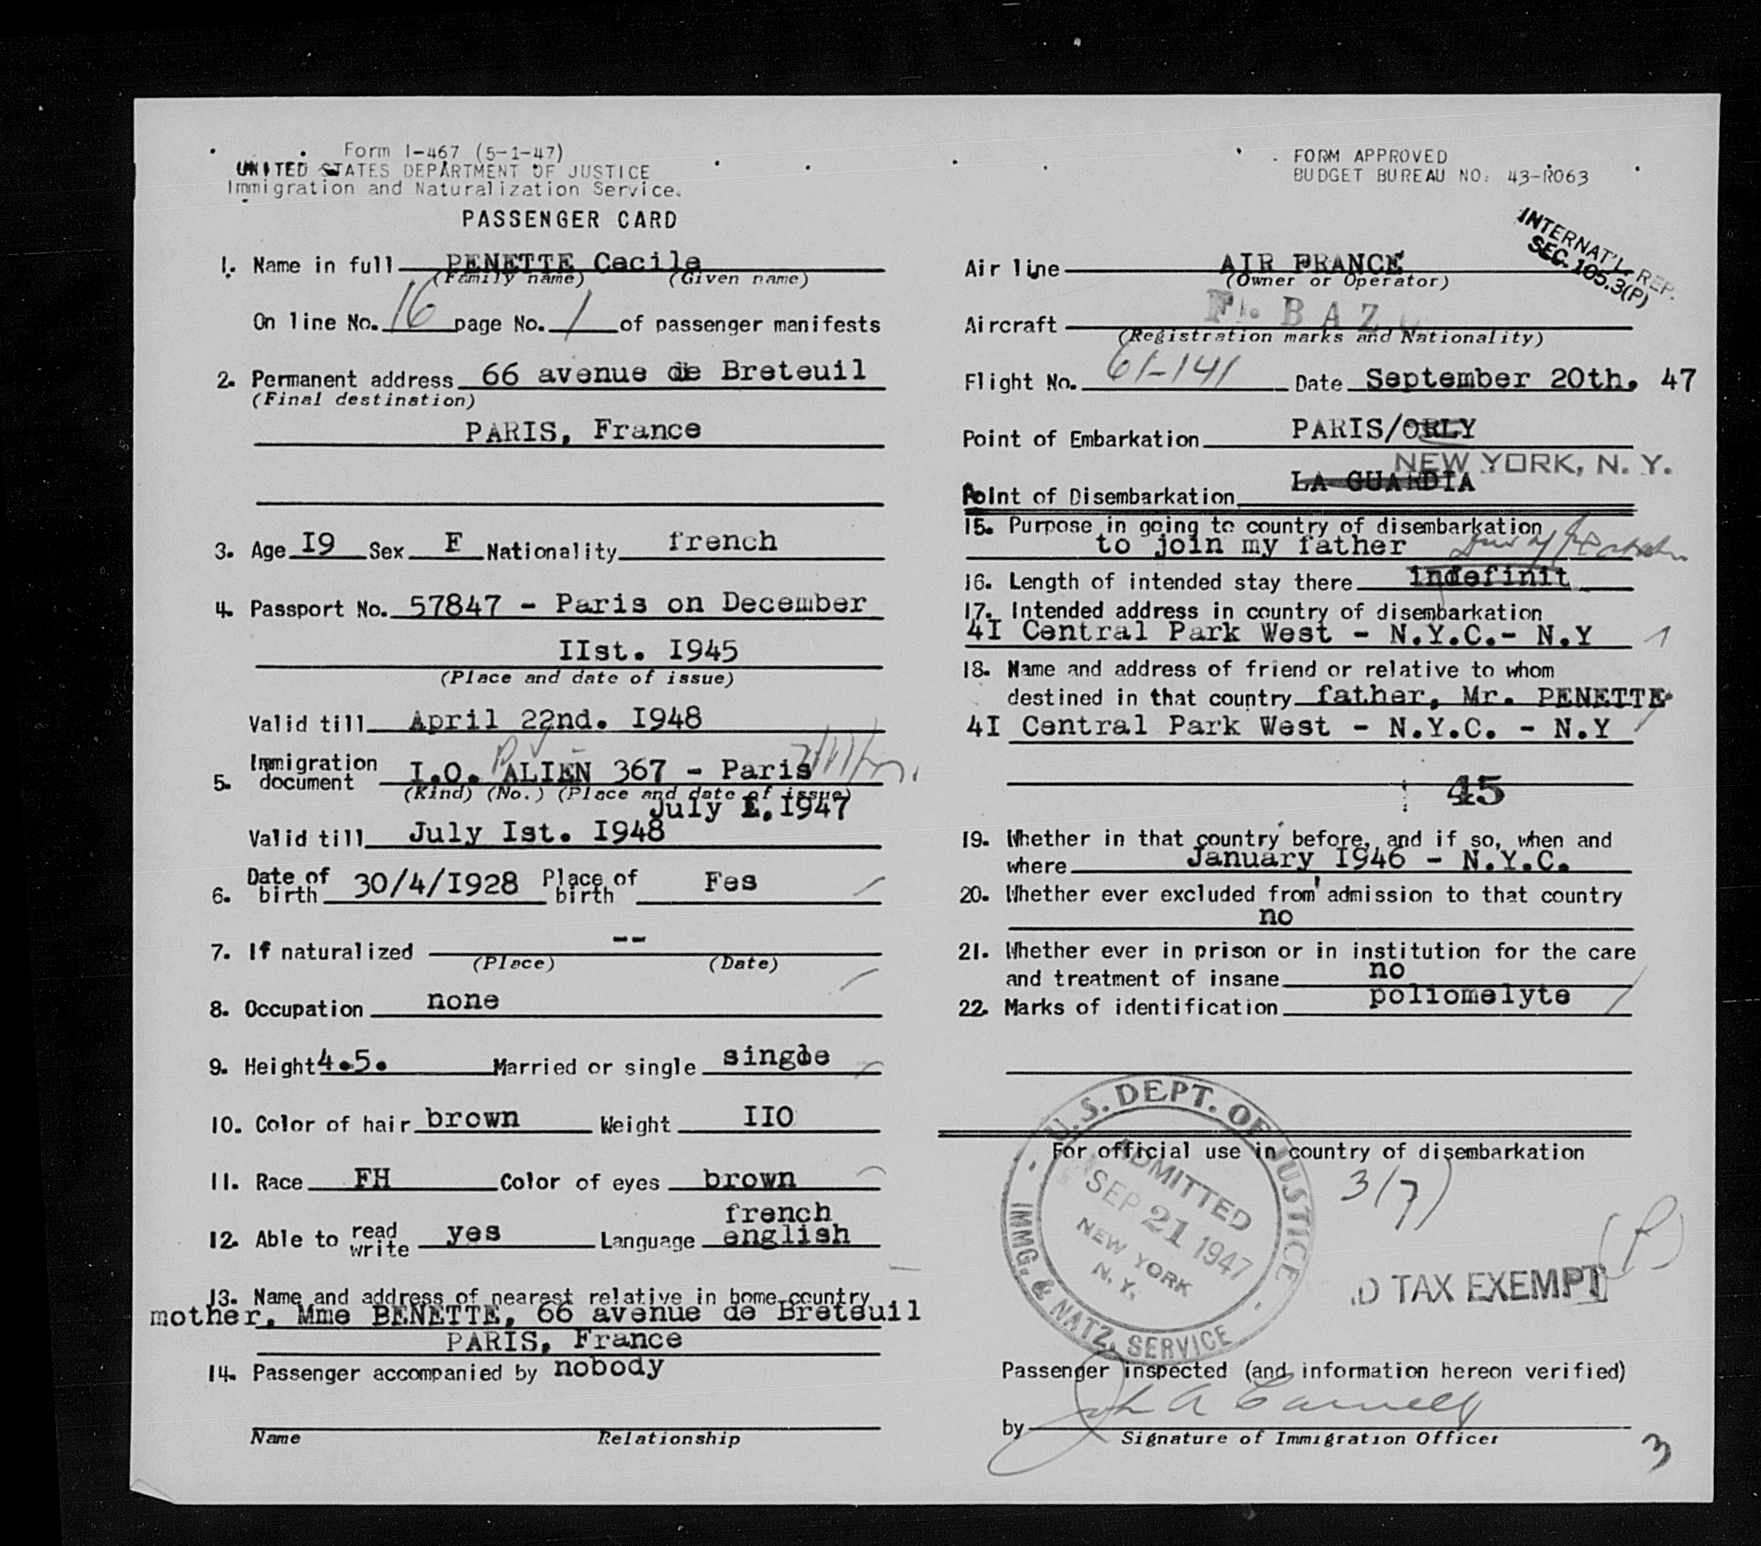 Form I-467 (5-1-47)
UNITED STATES DEPARTMENT OF JUSTICE
Immigration and Naturalization Service.
PASSENGER CARD
1. Name in full PENETTE Cecile
(Family name) (Given name)
On line No. 16 page No. 1 of passenger manifests
2. Permanent address 66 avenue de Breteuil
(Final destination)
PARIS, France
3. Age I9 Sex F Nationality french
4. Passport No. 57847 - Paris on December
IIst. I945
(Place and date of issue)
Valid till April 22nd. I948
5. Immigration document I.O. ALIEN 367 - Paris
(Kind) (No.) (Place and date of issue)
July I. I947
Valid till July Ist. I948
6. Date of birth 30/4/I928 Place of birth Fes
7. If naturalized --
(Place) (Date)
8. Occupation none
9. Height 4.5. Married or single single
10. Color of hair brown Weight IIO
11. Race FH Color of eyes brown
french
12. Able to read write yes Language english
13. Name and address of nearest relative in home country
mother, Mme BENETTE, 66 avenue de Breteuil
PARIS, France
14. Passenger accompanied by nobody
Name Relationship
FORM APPROVED
BUDGET BUREAU NO. 43-R063
INTERNAT'L. REP.
SEC. 105.3(P)
Air line AIR FRANCE
(Owner or Operator)
Aircraft F. BAZ
(Registration marks and Nationality)
Flight No. 61-141 Date September 20th. 47
Point of Embarkation PARIS/ORLY
NEW YORK, N. Y.
Point of Disembarkation LA GUARDIA
15. Purpose in going to country of disembarkation
to join my father
16. Length of intended stay there indefinit
17. Intended address in country of disembarkation
4I Central Park West - N.Y.C.- N.Y
18. Name and address of friend or relative to whom
destined in that country father, Mr. PENETTE
4I Central Park West - N.Y.C. - N.Y
45
19. Whether in that country before, and if so, when and
where January I946 - N.Y.C.
20. Whether ever excluded from admission to that country
no
21. Whether ever in prison or in institution for the care
and treatment of insane no
22. Marks of identification poliomelyte
For official use in country of disembarkation
U.S. DEPT. OF JUSTICE
IMMG. & NATZ. SERVICE
ADMITTED
SEP 21 1947
NEW YORK
N. Y.
3/7)
(P)
D TAX EXEMPT
Passenger inspected (and information hereon verified)
by
Signature of Immigration Officer
3